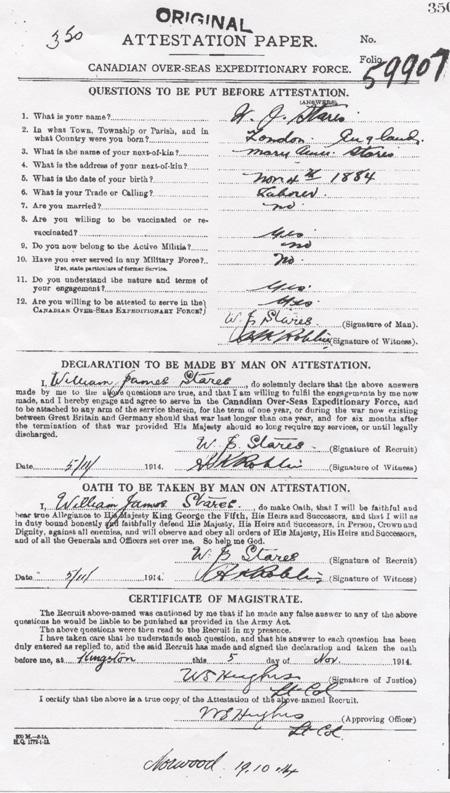 350
ORIGINAL
350
ATTESTATION PAPER.
No.
Folio.
59907
CANADIAN OVER-SEAS EXPEDITIONARY FORCE.
QUESTIONS TO BE PUT BEFORE ATTESTATION.
(ANSWERS)
1. What is your name? W. J. Stares
2. In what Town, Township or Parish, and in
what Country were you born? London England
3. What is the name of your next-of-kin? Mary Ann Stares
4. What is the address of your next-of-kin?
5. What is the date of your birth? Nov 4th 1884
6. What is your Trade or Calling? Laborer
7. Are you married? no
8. Are you willing to be vaccinated or re-
vaccinated? Yes
9. Do you now belong to the Active Militia? no
10. Have you ever served in any Military Force? No.
If so, state particulars of former Service.
11. Do you understand the nature and terms of
your engagement? Yes
12. Are you willing to be attested to serve in the
CANADIAN OVER-SEAS EXPEDITIONARY FORCE? Yes
W. J. Stares (Signature of Man).
(Signature of Witness).
DECLARATION TO BE MADE BY MAN ON ATTESTATION.
I, William James Stares, do solemnly declare that the above answers
made by me to the above questions are true, and that I am willing to fulfil the engagements by me now
made, and I hereby engage and agree to serve in the Canadian Over-Seas Expeditionary Force, and
to be attached to any arm of the service therein, for the term of one year, or during the war now existing
between Great Britain and Germany should that war last longer than one year, and for six months after
the termination of that war provided His Majesty should so long require my services, or until legally
discharged.
W. J. Stares (Signature of Recruit)
Date 5/11/ 1914. (Signature of Witness)
OATH TO BE TAKEN BY MAN ON ATTESTATION.
I, William James Stares, do make Oath, that I will be faithful and
bear true Allegiance to His Majesty King George the Fifth, His Heirs and Successors, and that I will as
in duty bound honestly and faithfully defend His Majesty, His Heirs and Successors, in Person, Crown and
Dignity, against all enemies, and will observe and obey all orders of His Majesty, His Heirs and Successors,
and of all the Generals and Officers set over me. So help me God.
W. J. Stares (Signature of Recruit)
Date 5/11/ 1914. (Signature of Witness)
CERTIFICATE OF MAGISTRATE.
The Recruit above-named was cautioned by me that if he made any false answer to any of the above
questions he would be liable to be punished as provided in the Army Act.
The above questions were then read to the Recruit in my presence.
I have taken care that he understands each question, and that his answer to each question has been
duly entered as replied to, and the said Recruit has made and signed the declaration and taken the oath
before me, at Kingston this 5 day of Nov. 1914.
WS Hughes (Signature of Justice)
Lt Col
I certify that the above is a true copy of the Attestation of the above-named Recruit.
WS Hughes (Approving Officer)
Lt Col
H.Q. 1772-1-13.
Norwood 19.10.14